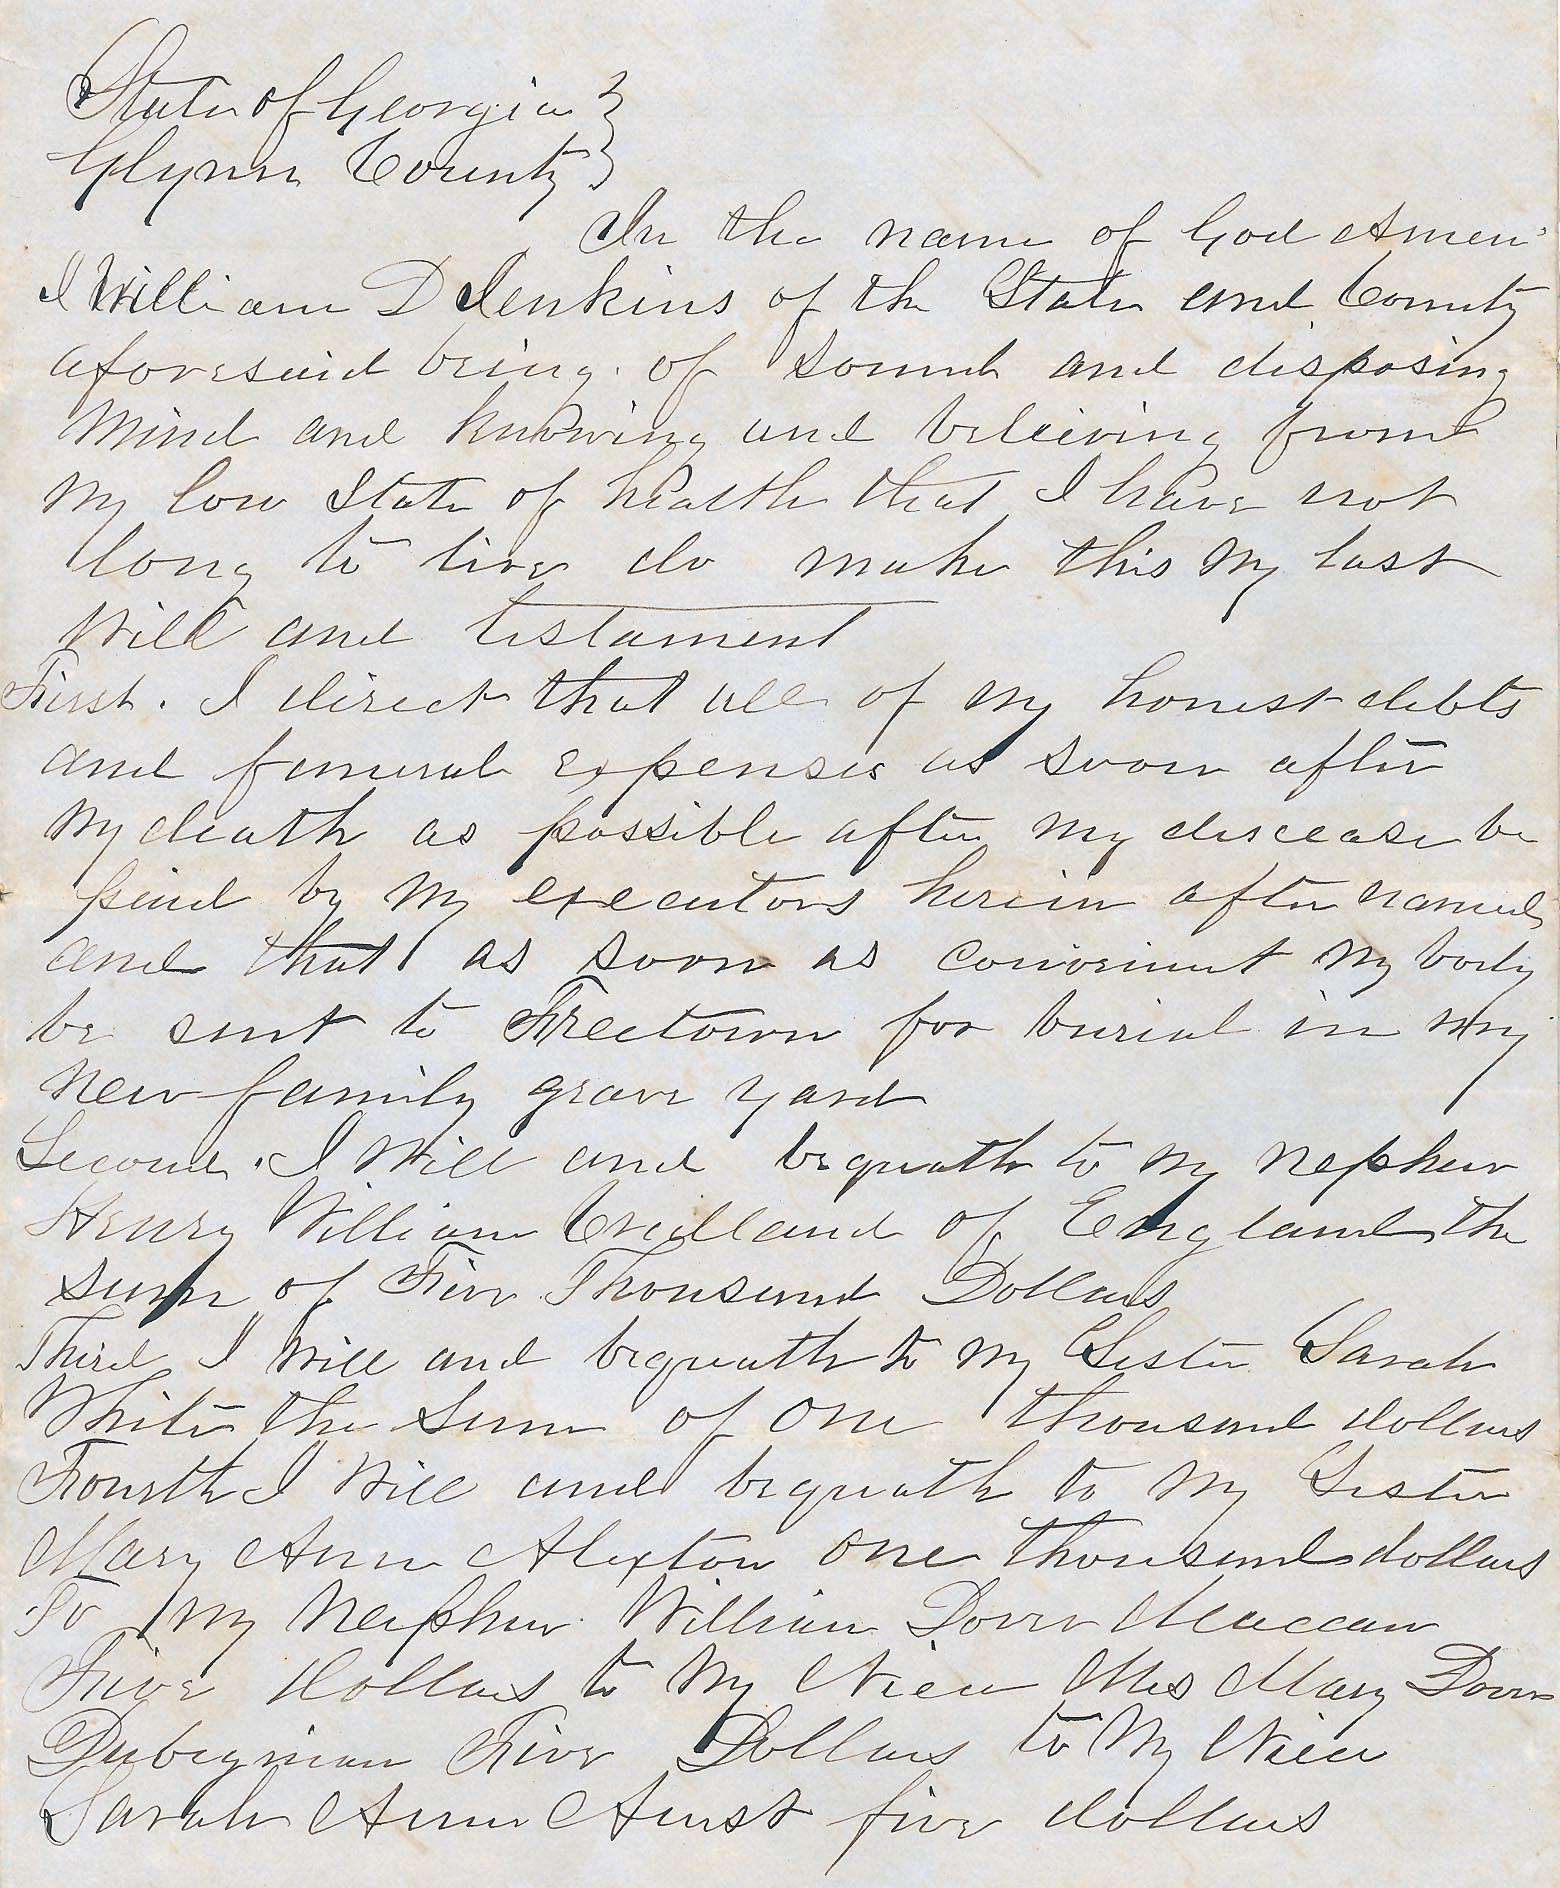 State of Georgia }
Glynn County }
In the name of God Amen
I William D Jenkins of the State and County
aforesaid being of sound and disposing
Mind and knowing and beleiving from
My low State of health that I have not
long to live do make this My last
Will and testament
First. I direct that all of my honest debts
and funeral expenses as soon after
My death as possible after my decease be
paid by My executors herein after named
and that as soon as convenient My body
be sent to Freetown for burial in my
New family grave yard
Second. I Will and bequeath to my Nephew
Henry William of England the
sum of Five Thousand Dollars
Third I Will and bequeath to My Sister Sarah
White the Sum of one thousand dollars
Fourth I Will and bequeath to My Sister
Mary Ann Alexton one thousand dollars
To my Nephew William Dover
Five Dollars to My Niece Mrs Mary Dover
Five Dollars to My Niece
Sarah Ann five dollars